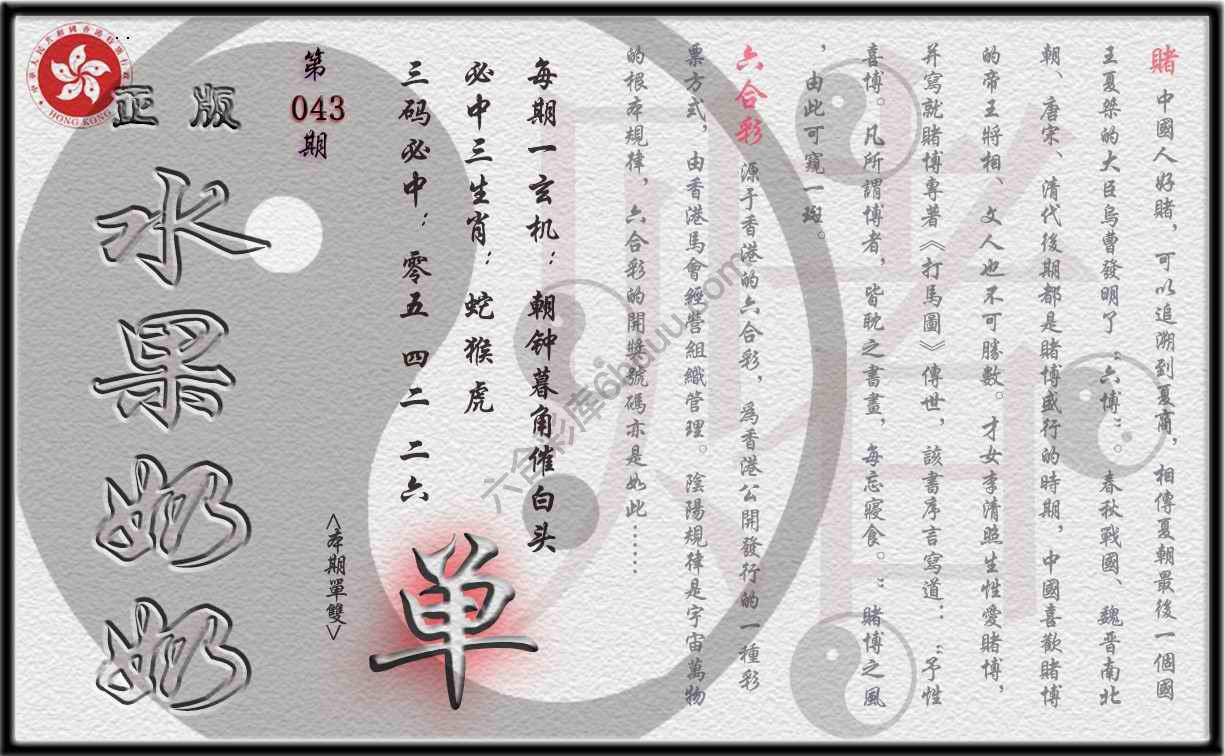 賭中國人好賭，可以追溯到夏商，相傳夏朝最後一個國
王夏桀的大臣烏曹發明了“六博”。春秋戰國、魏晋南北
朝、唐宋、清代後期都是賭博盛行的時期，中國喜歡賭博
的帝王將相、文人也不可勝數。才女李清照生性愛賭博，
并寫就賭博專著《打馬圖》傳世，該書序言寫道：“予性
喜博。凡所謂博者，皆耽之晝，每忘寢食。”賭博之風
，由此可窺一斑。
六合彩源于香港的六合彩，為香港公開發行的一種彩
票方式，由香港馬會經營組織管理。陰陽規律是宇宙萬物
的根本規律，六合彩的開獎號碼亦是如此……
每期一玄机：朝钟暮角催白头
必中三生肖：蛇猴虎
三码必中：零五 四二 二六
<本期單雙>
单
第
043
期
正版
水果奶奶
HONG KONG
六合彩库6htuuu.com